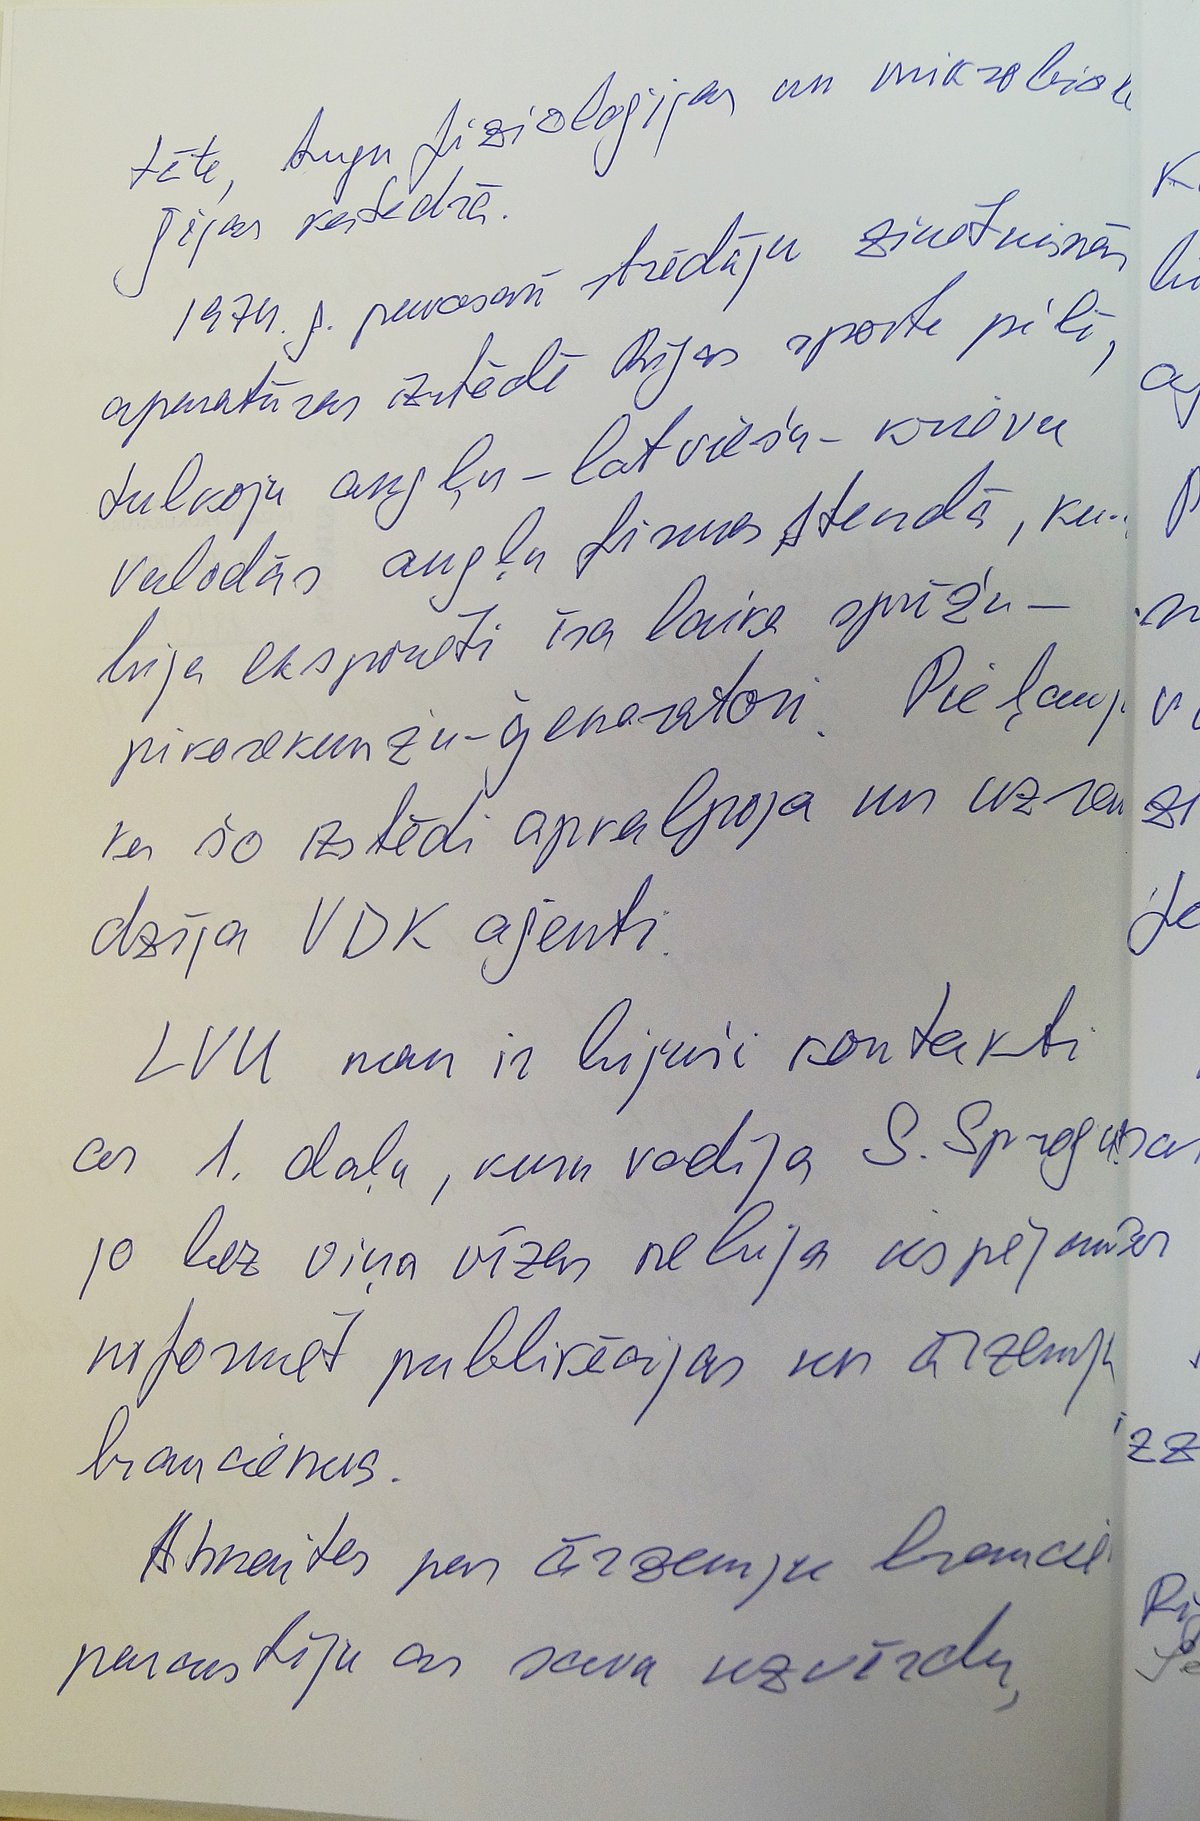 tētē, augu fizioloģijas un mikrobiolo
ģijas katedrā.
1974. g. pavasarī strādāju zinātniskās
aparatūras izstādē Rīgas sporta pilī,
tulkoju angļu-latviešu-krievu
valodās angļu firmas stendā, kur
bija eksponēti īsa laika sprīžu-
pikosekunžu-ģeneratori. Pieļauju
ka šo izstādi apkalpoja un uzrau
dzīja VDK aģenti.
LVU man ir bijuši kontakti
ar 1. daļu, kuru vadīja S. Sproģis
jo bez viņa vīzas nebija iespējams
noformēt publikācijas un ārzemju
braucienus.
Atskaites par ārzemju braucie
parakstīju ar savu uzvārdu,
izz